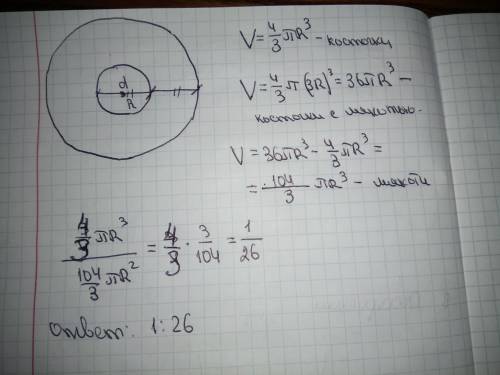 d
R
V = 4/3 πR³ - косточки
V = 4/3 π(3R)³ = 36πR³ -
косточки с мякотью.
V = 36πR³ - 4/3 πR³ =
= 104/3 πR³ - мякоти
4/3 πR³ / 104/3 πR² = 4/3 · 3/104 = 1/26
ответ: 1:26